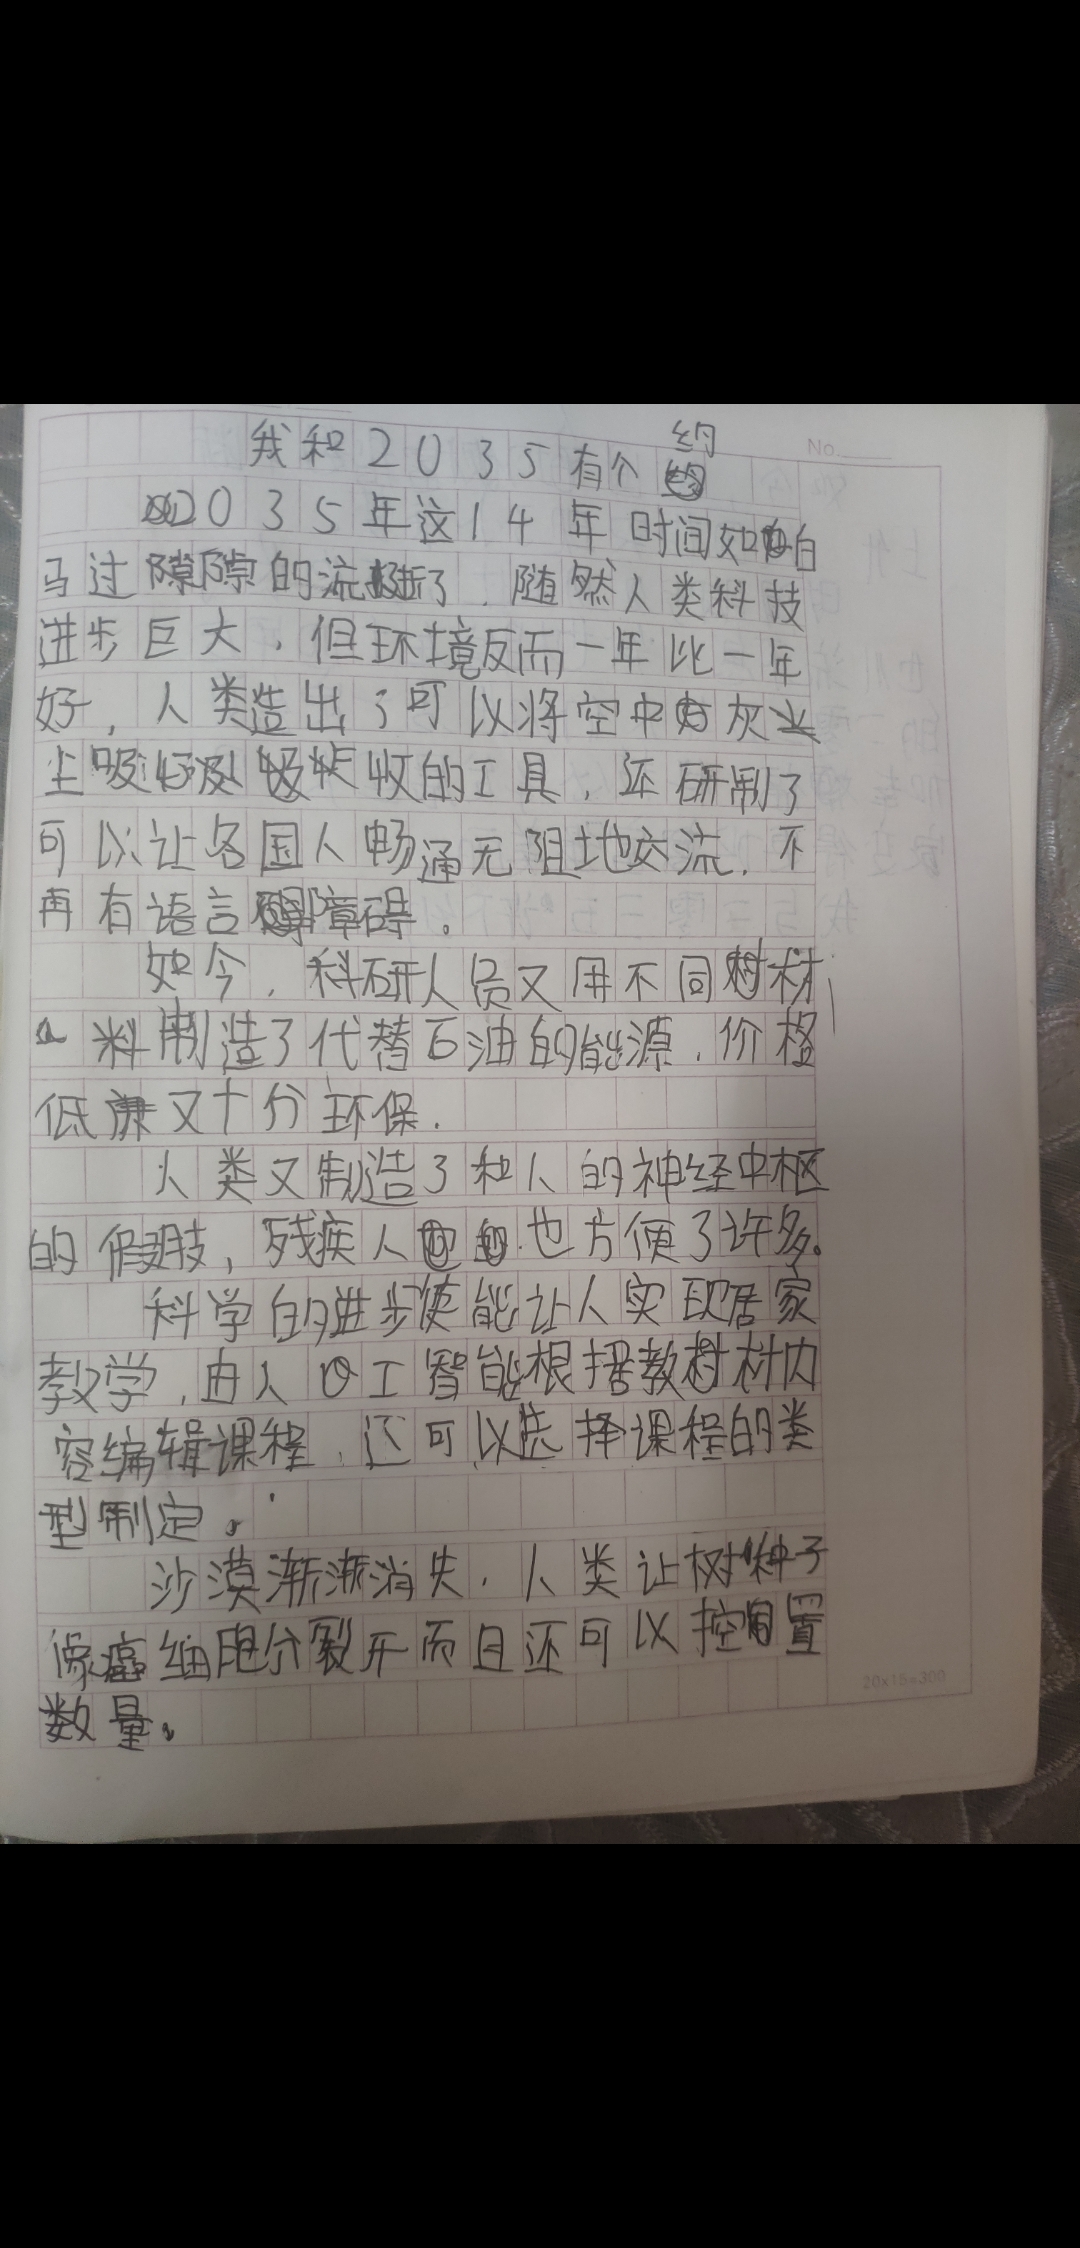 我和2035有个约
No.
2035年这14年时间如白
马过隙的流逝了，随然人类科技
进步巨大，但环境反而一年比一年
好，人类造出了可以将空中灰尘
吸收的工具，还研制了
可以让各国人畅通无阻地交流，不
再有语言障碍。
如今，科研人员又用不同材
料制造了代替石油的能源，价格
低廉又十分环保.
人类又制造了和人的神经中枢
的假肢，残疾人也方便了许多。
科学的进步使能让人实现居家
教学，由人工智能根据教材内
容编辑课程，还可以选择课程的类
型制定。
沙漠渐渐消失，人类让树种子
像癌细胞分裂开而且还可以控置
数量。
20x15=300